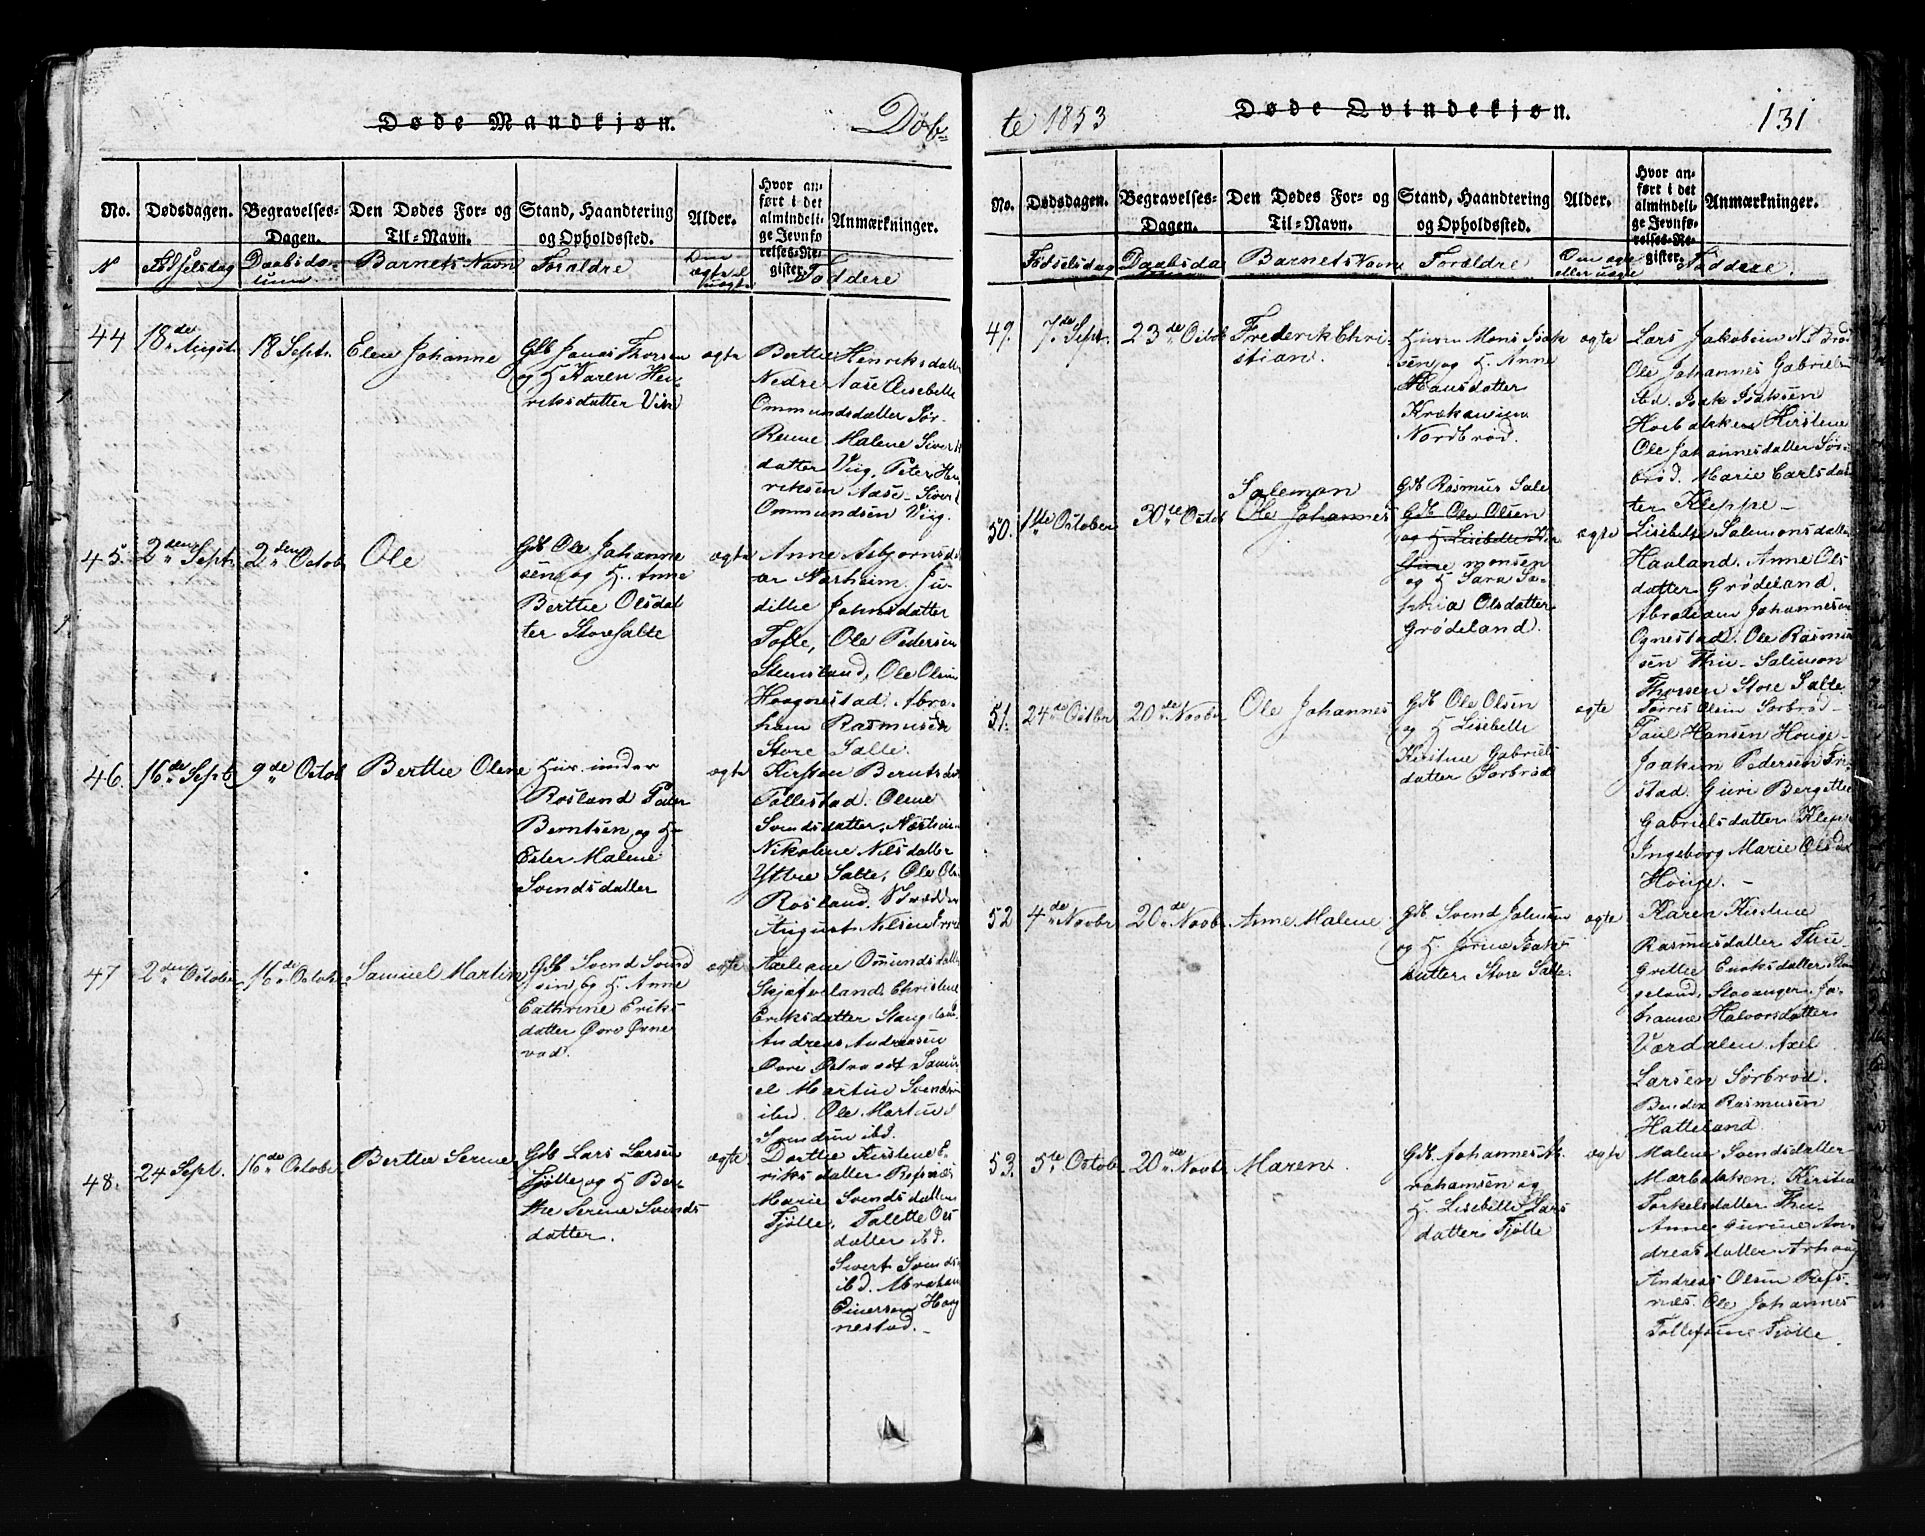 Døde Mandkjøn.
Døb-
No.
Dødsdagen.
Begravelses-
Dagen.
Den Dødes For- og
Til-Navn.
Stand, Haandtering
og Opholdssted.
Alder.
Hvor an-
ført i det
almindeli-
ge Jevnfø-
relses-Re-
gister.
Anmærkninger.
N
Fødselsdag
Daabsda-
tum
Barnets Navn
Foraldre
Om
ægte el
uægte
Faddere
44
18de August
18 Sept.
Elen Johanne
Gdb Jonas Thorsen
og H Karen Hen-
riksdatter Viu
ægte
Berthe Henriksdatter
Nedre Aase Elisebelle
Ommundsdatter Sør-
Reime Malene Sivert
datter Viig, Peter Hen
riksen Aase - Sivert
Ommundsen Viig.
45.
2den Sept.
2den Octob
Ole
Gdb Ole Johanne
sen og H. Anne
Berthe Olsdat
ter Store Salte
ægte
Anne Asbjørnsd
ter Nærheim Ju-
dithe Johnsdatter
Tofte, Ole Pedersen
Stensland, Ole Olsen
Haagnestad. Abra-
ham Rasmusen
Store Salte.
46.
16de Sept
9de Octob
Berthe Olene
Huur. under
Rosland Peder
Berntsen og H-
Ester Malene
Svendsdatter
ægte
Kirsten Berntsd
Tallestad. Olene
Svendsdatter, Nærheim
Nikoline Nilsdatter
Yttre Salte, Ole Ols
Rosland. Skrædder
August Nilsen
47
2den October
16de October
Samuel Martin
Gdb Svend Svend
sen og H. Anne
Cathrine Eriks
datter Øvre Øvre
vad.
ægte
Axeliane Omundsdatter
Skjæveland. Christine
Eriksdatter Stangeland
Andreas Andreasen
Øvre Østraadt Samu-
el Martin Svendsen
ibd. Ole Martin
Svendsen ibd.
48.
24 Sept.
16de October
Berthe Serine
Gdb Lars Larsen
Tjøtte og H Ber-
the Serene Svends
datter.
ægte
Dorthe Kirstene E-
riksdatter Refsnæs
Marie Svendsdatter
Tjøtte, Talette Ols
datter ibd.
Sivert Svends
ibd. Abraham
Einersen Haag
nestad.
te 1853
Døde Qvindekjøn.
131
No.
Dødsdagen.
Begravelses-
Dagen.
Den Dødes For- og
Til-Navn.
Stand, Haandtering
og Opholdssted.
Alder.
Hvor an-
ført i det
almindeli-
ge Jevnfø-
relses-Re-
gister.
Anmærkninger.
Fødselsdag
Daabsda
Barnets Navn
Forældre
Om ægte
eller uægte
Faddere.
49.
7de Sept.
23de Octob
Frederik Chri-
stian.
Huusm Mons Isak
sen og H. Anne
Hansdatter
Krækanun
Nordbrød.
ægte
Lars Jakobsen N. Brød
Ole Johannes Gabriels
Sbd. Isak Isaksen
Hoebakken Kirstene
Ole Johannesdatter Sør-
brød. Marie Carlsdat
ter Kleppe-
50.
1ste October
30te Octob
Salemon
Ole Johannes
Gdb Rasmus Sale
Gdb Ole Olsen
og H Lisebelle Kir
stine monsen
og H Sara So-
phia Olsdatter
Grødeland.
ægte
Lisebelle Salemonsdatter
Hauland. Anne Ols
datter Grødeland.
Abraham Johannesen
Ognestad. Ole Rasmus
sen Thu- Salemon
Thorsen Store Salte
51.
24de Octbr
20de Novbr
Ole Johannes
Gdb Ole Olsen
og H Lisebelle
Kirstine Gabriels
datter Sørbrød
ægte
Torres Olsen Sorbrød-
Paul Hansen Houge-
Joakim Pedersen Fri-
stad. Guri Bergitte
Gabrielsdatter Klepp
Ingeborg Marie Olsdat
Houge. -
52
4de Novbr
20de Novb
Anne Malene
Gdb Svend Johnsen
og H. Jorine Isaks
datter Store Salte.
ægte
Karen Kirstine
Rasmusdatter Thu-
Grethe Eriksdatter Stan
geland, Stavanger. Jo-
hanne Halvorsdatter
Værdalen. Axel
Larsen Sørbrød.
Bendix Rasmusen
Hatteland.
53.
5te Octob
20de Novb
Maren
Gdb Johannes Ab
rahamsen og
H. Lisebelle Lars
datter Tjøtte
ægte
Malene Svendsdatter
Mærbakken. Kirstia
Torkelsdatter Thu.
Anne Gurine An-
dreasdatter Arhoug
Andreas Olsen Refs-
næs. Ole Johannes
Tollefsen Tjøtte.